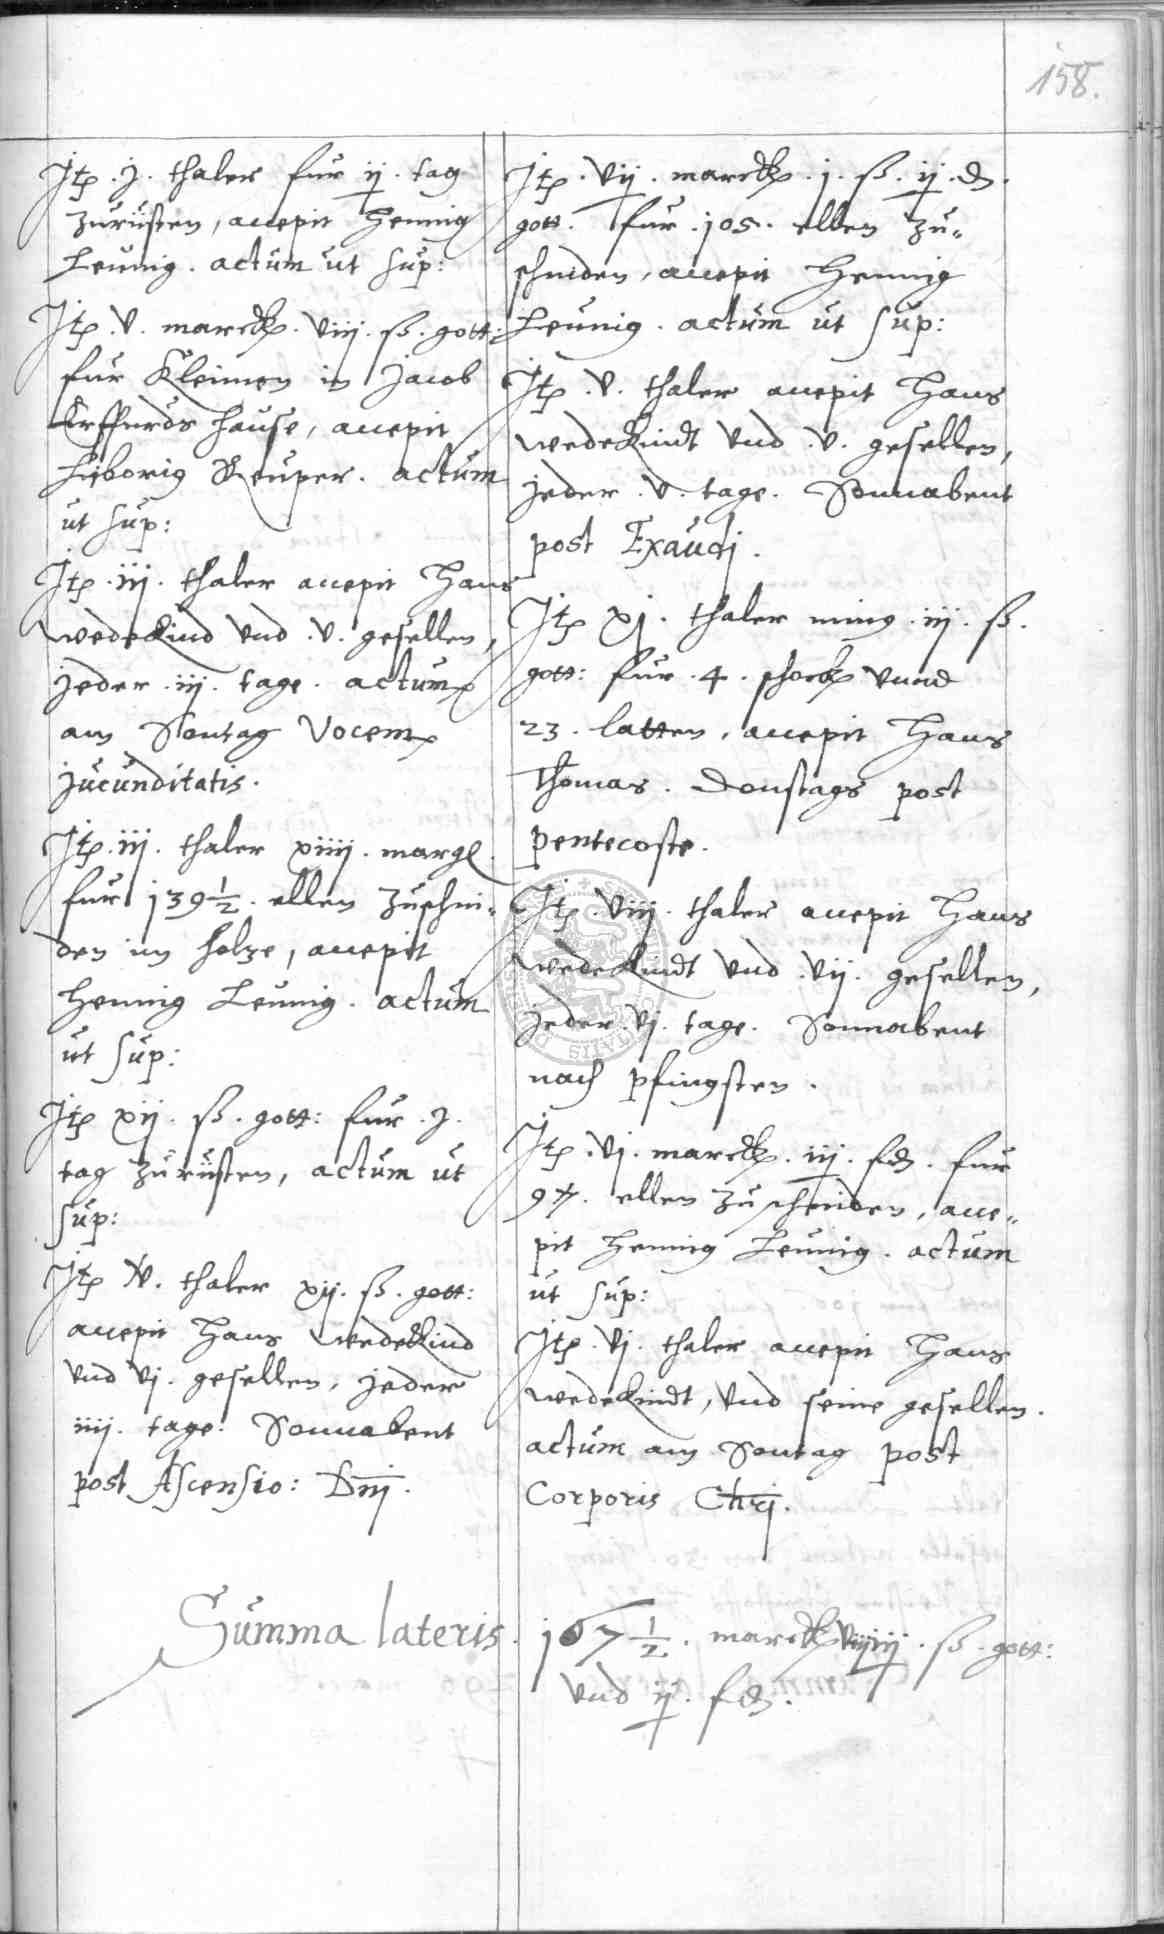 158.
Jtē .j. thaler fur ij. tag
zurüsten, accepit Hennig
Leunig. actum ut sup:
Jtē .v. marck. viij. ß. gott:
fur Kleimen in Jacob
Erffurds hause, accepit
Liborig Keuper. actum
ut sup:
Jtē .iij. thaler accepit Hans
wedekind vnd .v. gesellen,
jeder .iij. tage. actum
am Sontag Vocem
jucunditatis.
Jtē .iij. thaler xiiij. marg
fur 139½. ellen zuschni-
den im holze, accepit
Hennig Leunig. actum
ut sup:
Jtē xij. ß. gott: fur .j.
tag zurüsten, actum ut
sup:
Jtē V. thaler xij. ß. gott:
accepit Hans wedekind
vnd vj. gesellen, jeder
iiij. tage. Sonnabent
post Ascensio: Dnj.
Jtē .vij. marck .j. ß. ij. d.
gott. fur .105. ellen zu-
schniden, accepit Hennig
Leunig. actum ut sup:
Jtē .v. thaler accepit Hans
wedekindt vnd .v. gesellen,
jeder .v. tage. Sonnabent
post Exaudj.
Jtē xj. thaler ming .iij. ß.
gott: fur .4. schock vnnd
23. latten, accepit Hans
Thomas. Donstags post
pentecoste.
Jtē .viij. thaler accepit Hans
wedekindt vnd .vij. gesellen,
jeder .vj. tage. Sonnabent
nach pfingsten.
Jtē .vj. marck. iij. fd. fur
97. ellen zuschniden, acce-
pit Hennig Leunig. actum
ut sup:
Jtē .vj. thaler accepit Hans
wedekindt, vnd seine gesellen.
actum am Sontag post
Corporis Chrj.
Summa lateris. 167½. marck ß. gott:
vnd ij. fd.